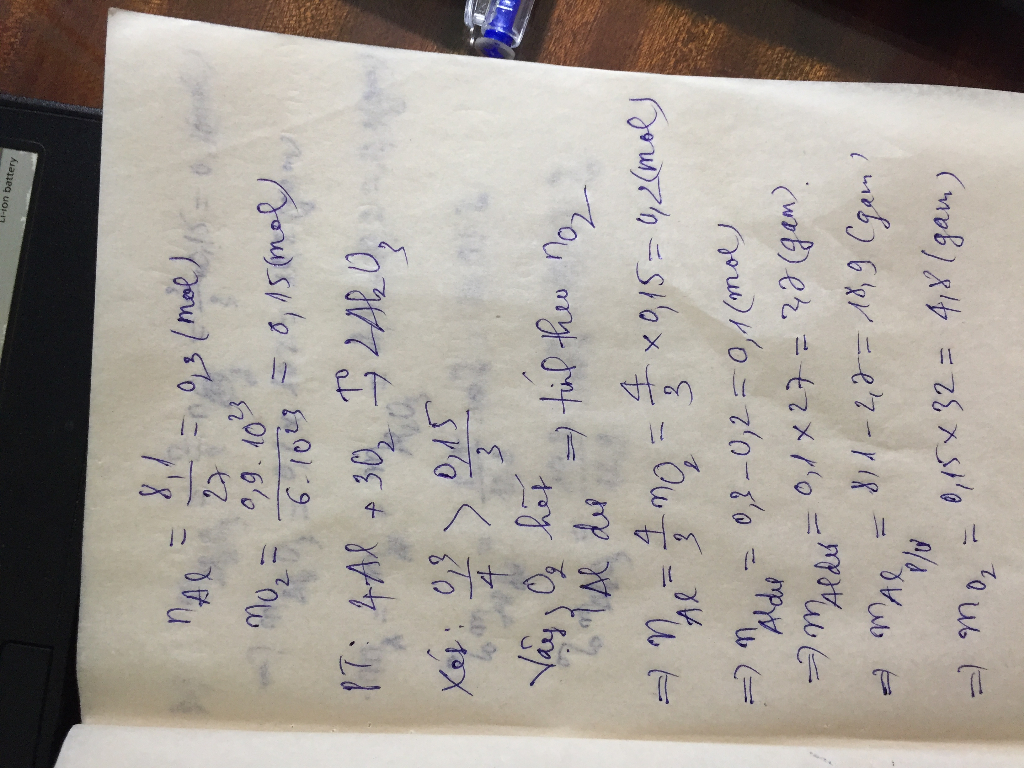 n Al = 8,1 / 27 = 0,3 (mol)
nO2 = 0,9 . 10^23 / 6 . 10^23 = 0,15 (mol)
PT: 4Al + 3O2 -t°-> 2Al2O3
Xét: 0,3 / 4 > 0,15 / 3
Vậy { O2 hết
Al dư => tính theo nO2
=> n Al = 4/3 nO2 = 4/3 x 0,15 = 0,2 (mol)
=> n Al dư = 0,3 - 0,2 = 0,1 (mol)
=> m Al dư = 0,1 x 27 = 2,7 (gam).
=> m Al p/ư = 8,1 - 2,7 = 18,9 (gam)
=> mO2 = 0,15 x 32 = 4,8 (gam)
Li-ion battery